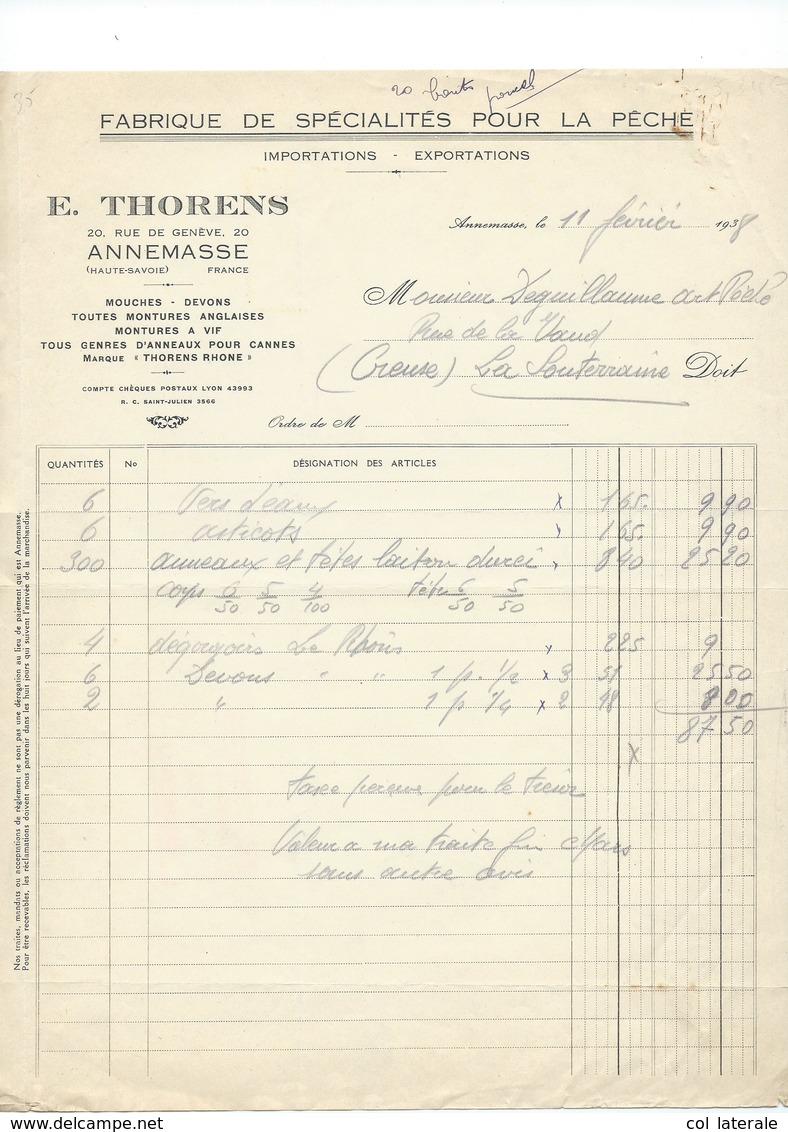 35
20 boites
FABRIQUE DE SPÉCIALITÉS POUR LA PÊCHE
IMPORTATIONS - EXPORTATIONS
E. THORENS
20, RUE DE GENÈVE, 20
ANNEMASSE
(HAUTE-SAVOIE) FRANCE
Annemasse, le 11 février 1938
MOUCHES - DEVONS
TOUTES MONTURES ANGLAISES
MONTURES A VIF
TOUS GENRES D'ANNEAUX POUR CANNES
MARQUE « THORENS RHONE »
COMPTE CHÈQUES POSTAUX LYON 43993
R. C. SAINT-JULIEN 3566
Monsieur Deguillaume art Pêche
Rue de la
(Creuse) La Souterraine Doit
Ordre de M
QUANTITÉS No DÉSIGNATION DES ARTICLES
6 Vers d'eaux x 1 65 9 90
6 asticots 1 65 9 90
300 anneaux et têtes laiton durci 8 40 25 20
corps 6/50 5/50 4/100 tête 6/50 5/50
4 dégorgeoirs Le 2 25 9
6 Devons " " 1 p. 1/2 x 3 51 25 50
2 " 1 p 1/4 x 2 48 8 00
87 50
x
taxe perçue pour le trésor
Valeur a ma traite fin Mars
sans autre avis
Nos traites, mandats ou acceptations de règlement ne sont pas une dérogation au lieu de paiement qui est Annemasse.
Pour être recevables, les réclamations doivent nous parvenir dans les huit jours qui suivent l'arrivée de la marchandise.
col laterale